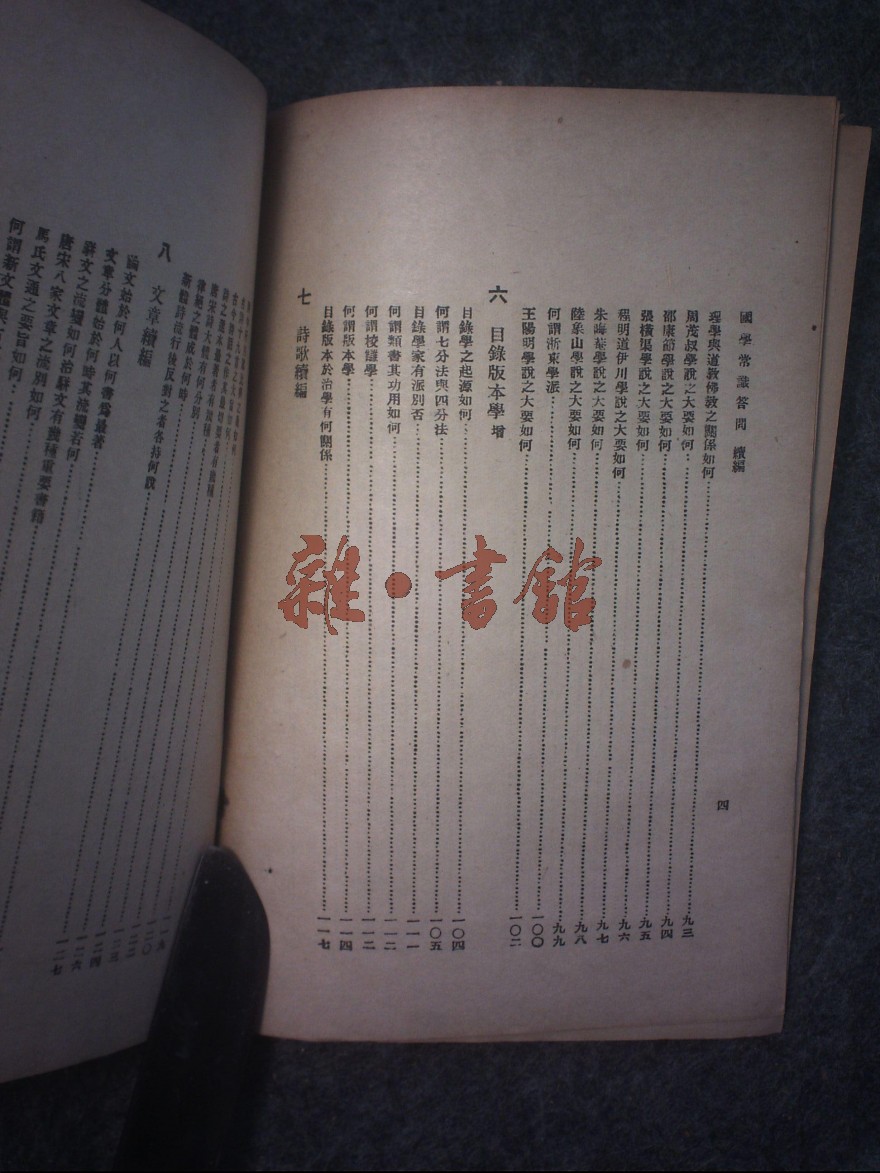 國學常識答問 續編 四
理學與道教佛教之關係如何 九三
周茂叔學說之大要如何 九四
邵康節學說之大要如何 九五
張橫渠學說之大要如何 九六
程明道伊川學說之大要如何 九七
朱晦菴學說之大要如何 九八
陸象山學說之大要如何 九九
何謂浙東學派 一〇〇
王陽明學說之大要如何 一〇二
六 目錄版本學 增
目錄學之起源如何 一〇四
何謂七分法與四分法 一〇五
目錄學家有派別否 一一一
何謂類書其功用如何 一一二
何謂校讎學 一一二
何謂版本學 一一四
目錄版本於治學有何關係 一一七
七 詩歌續編
唐宋詩大槪有何分別
律絕之體成於何時
新體詩流行後反對之者各持何說
八 文章續編
論文始於何人以何書爲最著
文章分體始於何時其流變若何
駢文之流變如何治駢文有幾種重要書籍
唐宋八家文章之流別如何
馬氏文通之要旨如何
何謂新文體與
雜·書館